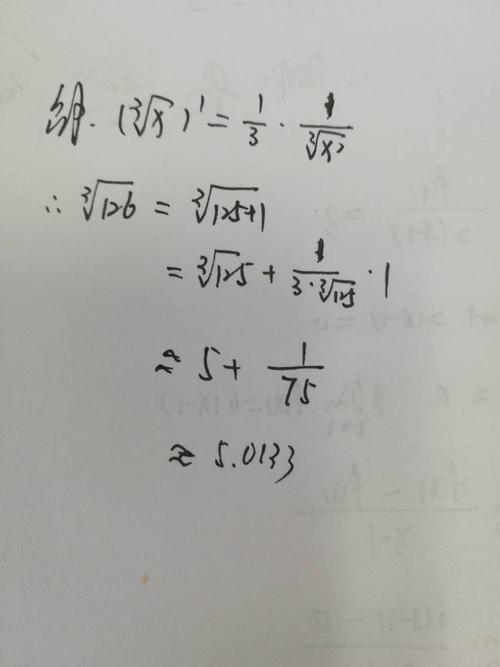 解. (∛x)' = 1/3 · 1/∛x²
∴ ∛126 = ∛125+1
= ∛125 + 1/(3·∛125) · 1
≈ 5 + 1/75
≈ 5.0133